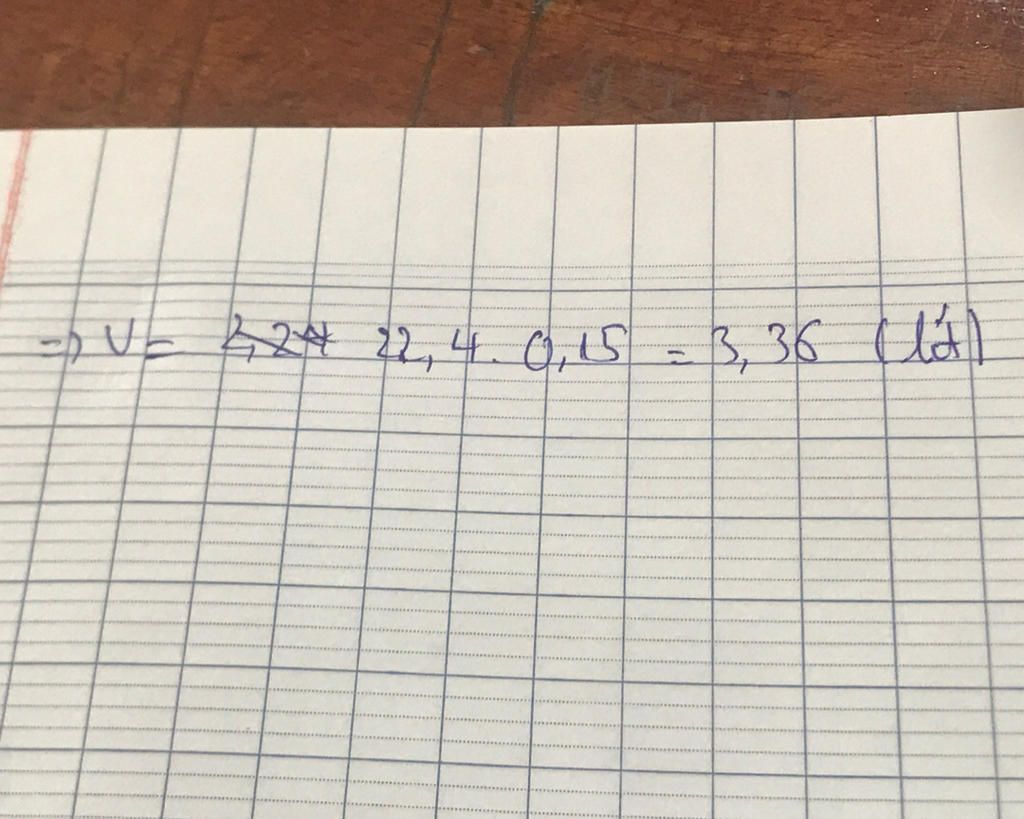 => V = 2,24 22,4. 0,15 = 3,36 (lít)